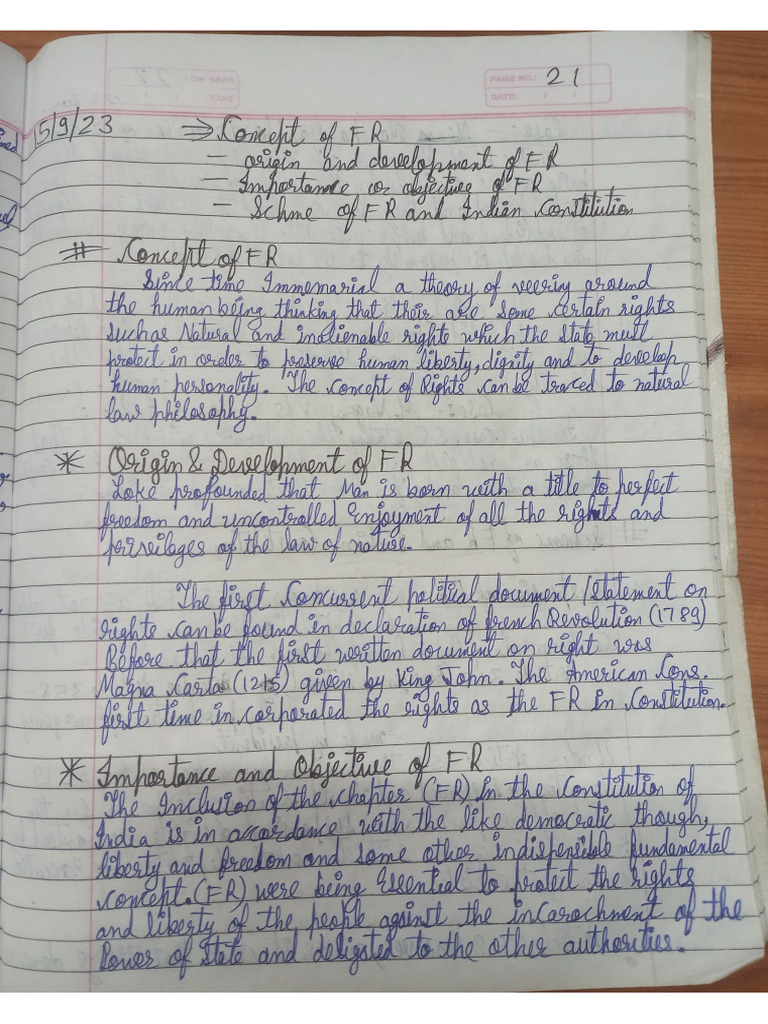 PAGE NO.: 21
DATE: / /
5/9/23 ⇒ Concept of FR
- origin and development of FR
- Importance or objective of FR
- Schme of FR and Indian Constitution
# Concept of FR
Since time Immemarial a theory of veering around
the human being thinking that their are some certain rights
such as Natural and inalienable rights which the state must
protect in order to preserve human liberty, dignity and to develop
human personality. The concept of Rights can be traced to natural
law philosophy.
* Origin & Development of FR
Loke profounded that Man is born with a title to perfect
freedom and uncontrolled Enjoyment of all the rights and
priveilages of the law of nature.
The first Concurrent political document / statement on
rights can be found in declaration of french Revolution (1789)
Before that the first written document on right was
Magna Carta (1215) given by King John. The American Cons.
first time in corporated the rights as the FR in Constitution.
* Importance and Objective of FR
The Inclusion of the chapter (FR) in the Constitution of
India is in accordance with the like democratic though,
liberty and freedom and some other indispensible fundamental
concept. (FR) were being Essential to protect the rights
and liberty of the people against the incaroachment of the
Power of State and deligated to the other authorities.